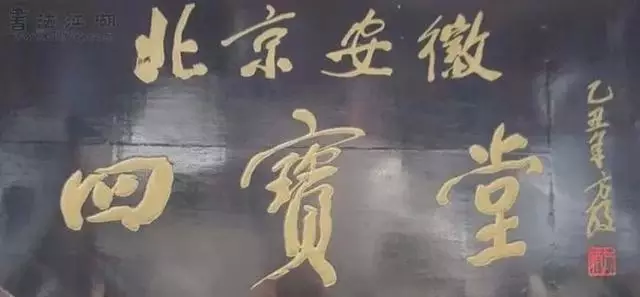 北京安徽
四寶堂
乙丑年方毅
書法江湖